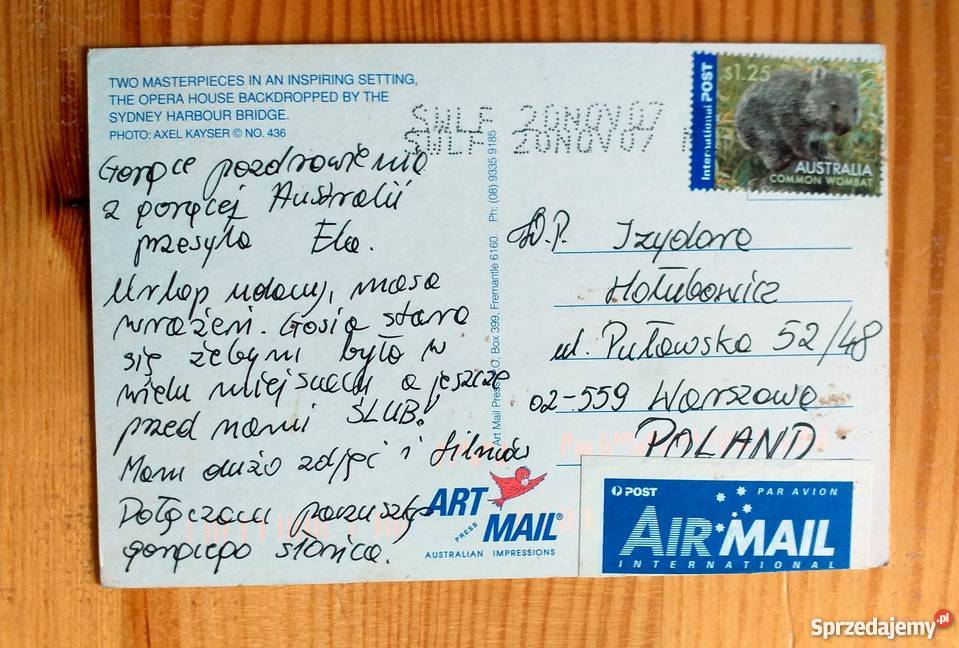 TWO MASTERPIECES IN AN INSPIRING SETTING,
THE OPERA HOUSE BACKDROPPED BY THE
SYDNEY HARBOUR BRIDGE.
PHOTO: AXEL KAYSER © NO. 436
SWLF 20NOV07
SWLF 20NOV07
Gorące pozdrowienia
z gorącej Australii
przesyła Ela.
Urlop udany, masa
wrażeń. Gosia stara
się żebyśmy było w
wielu miejscach a jeszcze
przed nami ŚLUB!
Mam dużo zdjęć i filmów
Dołączam
gorącego słońca.
Art Mail Press P.O. Box 399, Fremantle 6160. Ph: (08) 9335 9185
International POST
$1.25
AUSTRALIA
COMMON WOMBAT
W.P. Izydora
Hołubowicz
ul. Puławska 52/48
02-559 Warszawa
POLAND
ART
PRESS
MAIL®
AUSTRALIAN IMPRESSIONS
POST PAR AVION
AIR MAIL
INTERNATIONAL
Sprzedajemy.pl